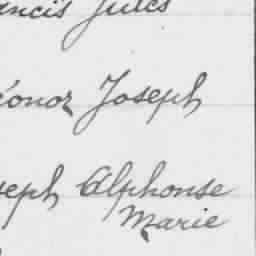 ancis Jules
éonor Joseph
seph Alphonse
Marie